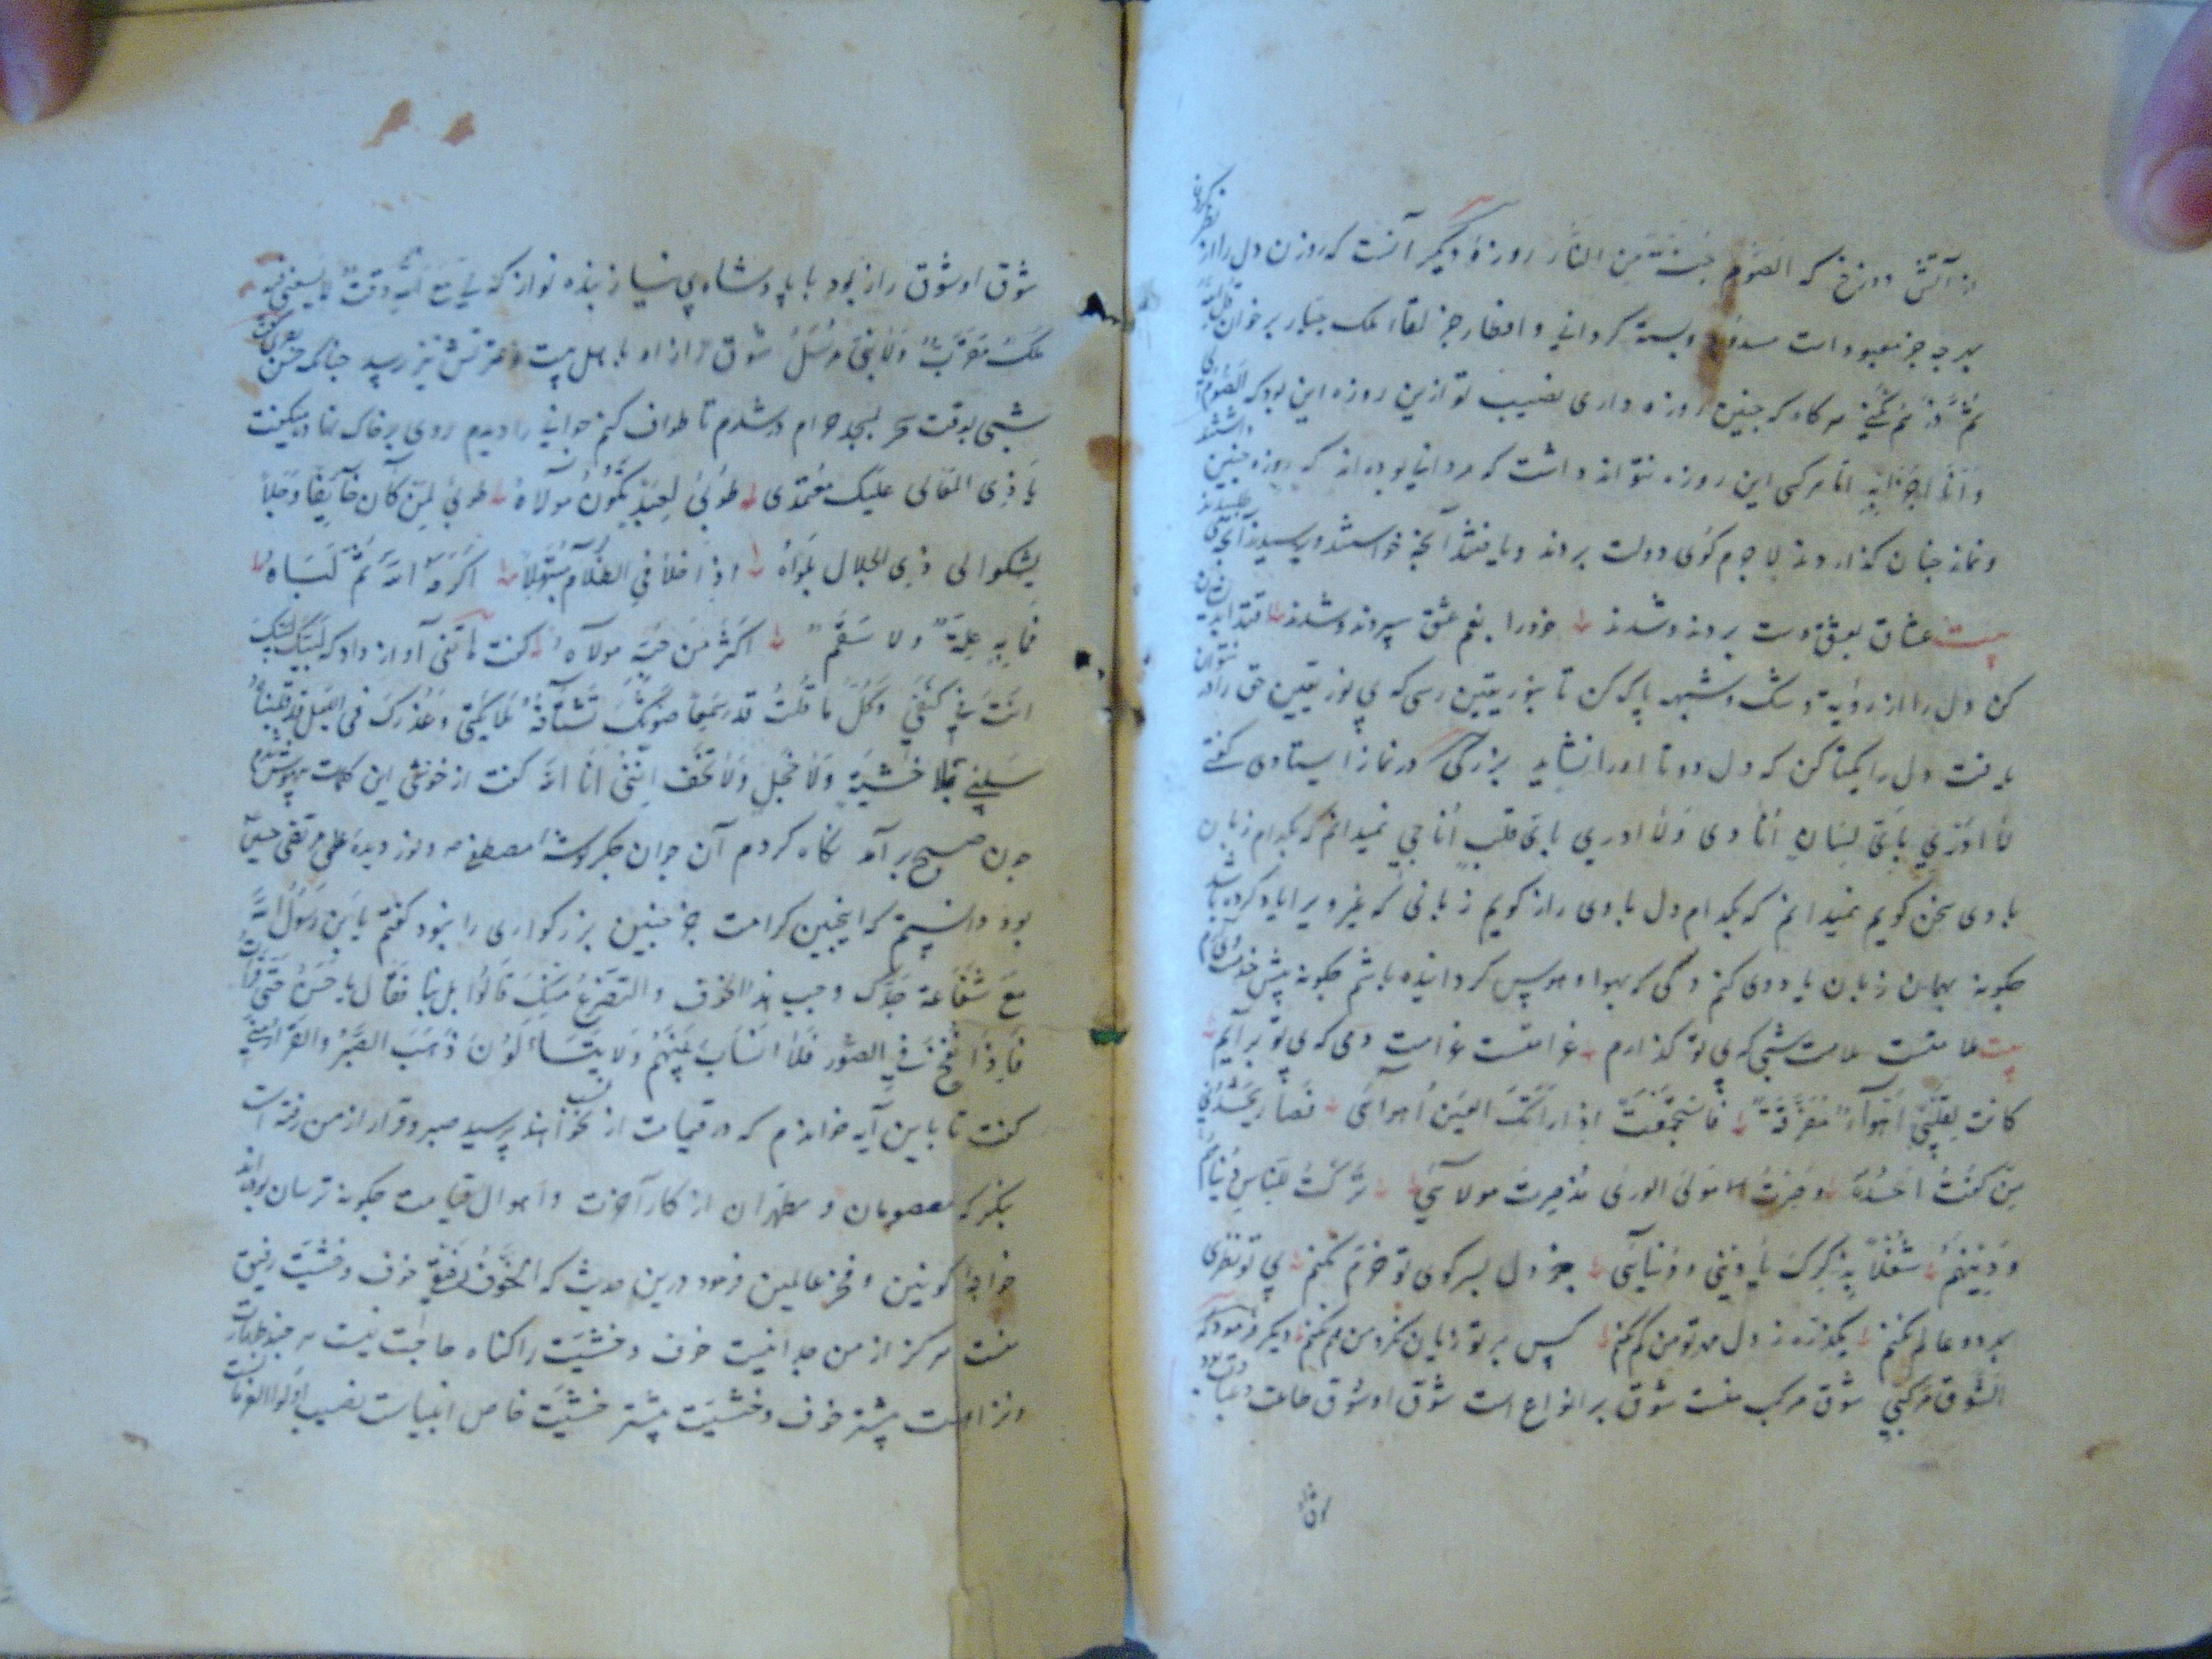 از آتش دوزخ که الصَّوْمُ جُنَّةٌ مِنَ النَّار روزهٔ دیگر آنست که روزن دل را از نظر کردن
بهر چه جز معبود است مسدود و بسته گردانی و افطار جز لقاء ملک جبار بر خوان
هرگاه که چنین روزه داری نصیب تو ازین روزه این بود که الصَّوْمُ لِی
وَ اَنَا اَجْزِی بِهِ اما هر کسی این روزه نتواند داشت که مردانی بوده اند که روزه چنین داشتند
و نماز چنان گذاردند لاجرم گوی دولت بردند و یافتند آنچه خواستند و رسیدند آنجا که طلبیدند
بیت عشاق بعشق دست بردند و شدند خود را بغم عشق سپردند و شدند
کن دل را از رویة و شک و شبهه پاک کن تا بنور یقین رسی که بی نور یقین حق را در نتوان
یافت دل را یکتا کن که دل دوتا او را نشاید بزرگی در نماز ایستادی گفتی
لَا اَدْرِی بِاَیِّ لِسَانٍ اُنَادِی وَ لَا اَدْرِی بِاَیِّ قَلْبٍ اُنَاجِی نمیدانم که بکدام زبان
با وی سخن گویم نمیدانم که بکدام دل با وی راز گویم زبانی که غیر ویرا یاد کرده باشد
چگونه بهمان زبان یاد وی کنم و دلی که بهوا و هوس گردانیده باشم چگونه پیش خدمت وی آرم
بیت ملامتست ملامت شبی که بی تو گذارم غرامتست غرامت دمی که بی تو برآرم
کانت لِقَلْبِی اَهْوَاءٌ مُفَرَّقَةٌ فَاسْتَجْمَعَتْ اِذْ رَأَتْکَ العَیْنُ اَهْوَائِی فَصَارَ یَحْسُدُنِی
مَنْ کُنْتُ اَحْسُدُهُ وَصِرْتُ مَوْلَی الوَرَی مُذْ صِرْتَ مَوْلَائِی تَرَکْتُ لِلنَّاسِ دُنْیَاهُمْ
وَ دِینَهُمْ شُغْلًا بِذِکْرِکَ یَا دِینِی وَ دُنْیَائِی جز دل بسر کوی تو خرم نکنم بی تو نظری
بهر دو عالم نکنم یکذره ز دل مهر تو من کم نکنم کس بر تو زیان نکرد من هم نکنم دیگر فرمود که
الشَّوْقُ مَرْکَبِی شوق مرکب منست شوق بر انواع است شوق او شوق طاعت و عبادت بود
شوق او
شوق او شوق راز بود با پادشاه بی نیاز بنده نواز که لِی مَعَ اللهِ وَقْتٌ لَا یَسَعُنِی فِیهِ
مَلَکٌ مُقَرَّبٌ وَلَا نَبِیٌّ مُرْسَلٌ شوق راز او با اهل بیت و عترتش نیز رسید چنانکه حسن بصری گفت
شبی بوقت سحر بمسجد حرام در شدم تا طواف کنم جوانی را دیدم روی بر خاک نهاده میگفت
یَا ذِی المَعَالِی عَلَیْکَ مُعْتَمَدِی طُوبَی لِعَبْدٍ تَکُونُ مَوْلَاهُ طُوبَی لِمَنْ کَانَ خَائِفًا وَجِلًا
یَشْکُو اِلَی ذِی الجَلَالِ بَلْوَاهُ اِذَا خَلَا فِی الظَّلَامِ مُبْتَهِلًا اَکْرَمَهُ اللهُ ثُمَّ لَبَّاهُ
فَمَا بِهِ عِلَّةٌ وَلَا سَقَمٌ اَکْثَرَ مِنْ حُبِّهِ مَوْلَاهُ گفت هاتفی آواز داد که لَبَّیْکَ لَبَّیْکَ
اَنْتَ فِی کَنَفِی وَکُلُّ مَا قُلْتَ قَدْ سَمِعْنَا صَوْتُکَ تَشْتَاقُهُ مَلَائِکَتِی وَعُذْرُکَ فِی اللَّیْلِ قَدْ قَبِلْنَاهُ
سَلْنِی بِلَا خَشْیَةٍ وَلَا خَجَلٍ وَلَا تَخَفْ اِنَّنِی اَنَا اللهُ گفت از خوشی این کلمات بیهوش شدم
چون صبح برآمد نگاه کردم آن جوان جگرگوشهٔ مصطفی و نور دیدهٔ علی مرتضی حسین
بود دانستم که اینچنین کرامت جز چنین بزرگواری را نبود گفتم یَا بْنَ رَسُولِ اللهِ
مَعَ شَفَاعَةِ جَدِّکَ هذا الخوف و التضرع مِنْکَ
فَاِذَا نُفِخَ فِی الصُّورِ فَلَا اَنْسَابَ بَیْنَهُمْ وَلَا یَتَسَاءَلُونَ ذَهَبَ الصَّبْرُ وَالقَرَارُ مِنِّی
گفت تا باین آیه خواندم که در قیامت از نسب نخواهند پرسید صبر و قرار از من رفته است
بنگر که معصومان و مطهران از کار آخرت و اهوال قیامت چگونه ترسان بوده اند
خواجهٔ کونین و فخر عالمین فرمود درین حدیث که الخَوْفُ رَفِیقِی خوف و خشیت رفیق
منست هرگز از من جدا نیست خوف و خشیت را گناه حاجت نیست هر چند طهارت
و نزاهت بیشتر خوف و خشیت بیشتر خشیت خاص انبیاست نصیب